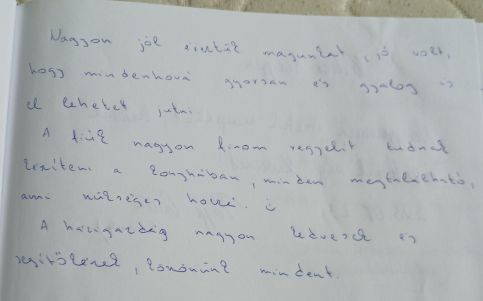 Nagyon jól éreztük magunkat, jó volt,
hogy mindenhová gyorsan és gyalog is
el lehetet jutni.
A fiúk nagyon finom reggelit tudnak
készíteni a konyhában, minden megtalálható,
ami szükséges hozzá. ☺
A házigazdáig nagyon kedvesek és
segítőkészek, köszönünk mindent.